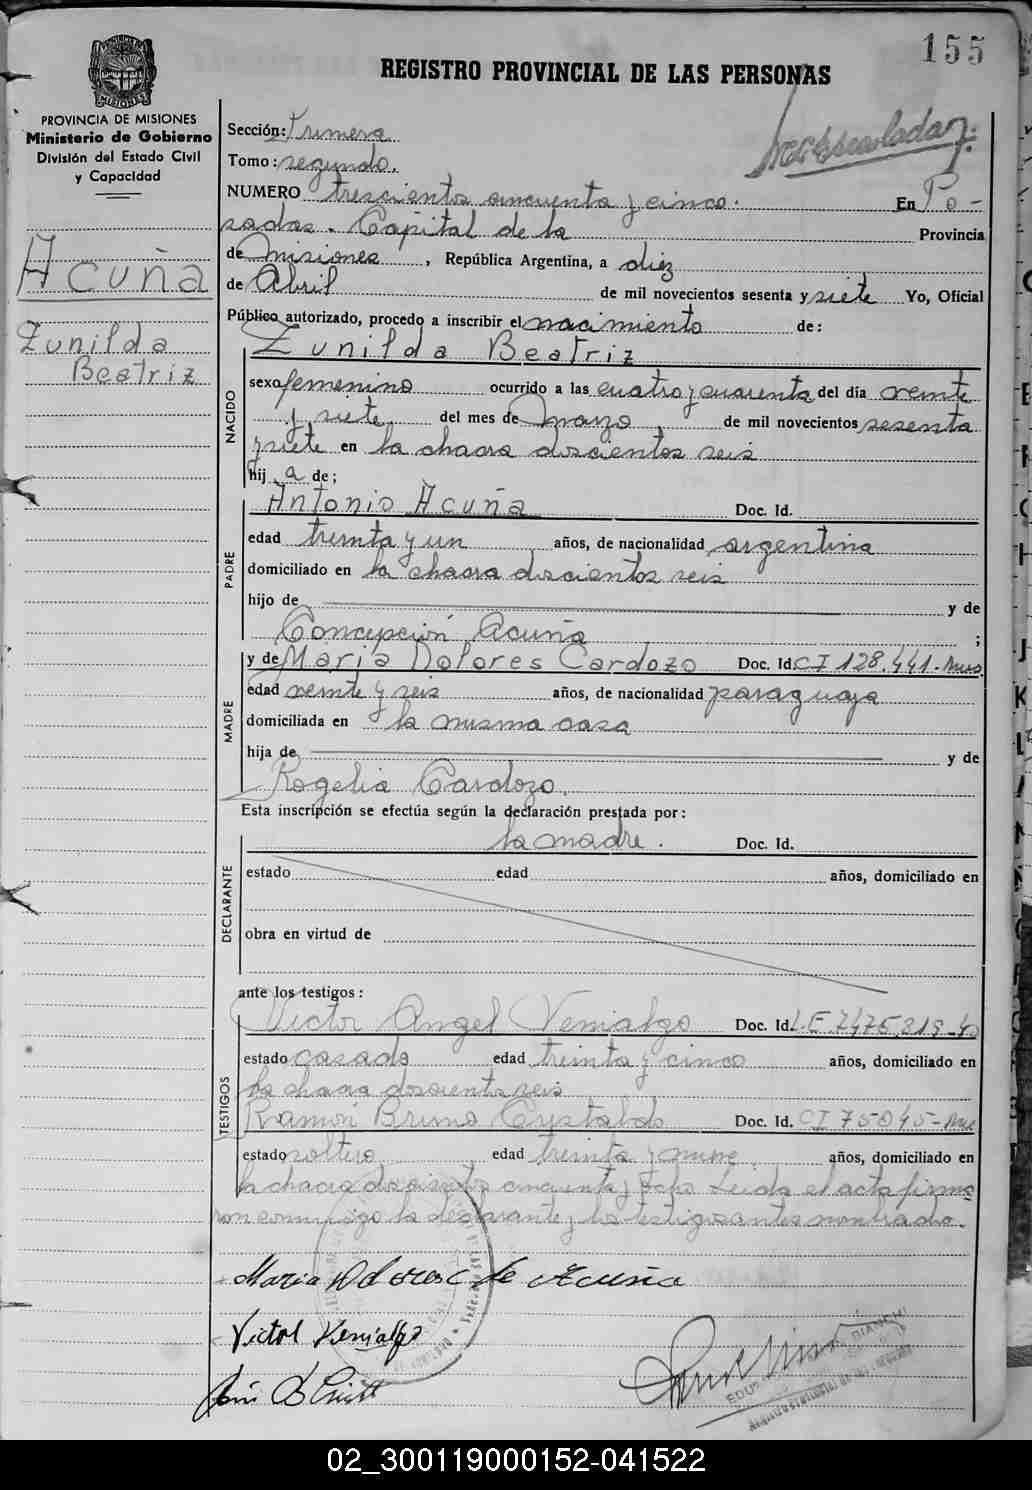 155
REGISTRO PROVINCIAL DE LAS PERSONAS
PROVINCIA DE MISIONES
Ministerio de Gobierno
División del Estado Civil
y Capacidad
Acuña
Zunilda
Beatriz
Sección: Primera
Tomo: segundo.
NUMERO trescientos cincuenta y cinco. En Po-
sadas. Capital de la Provincia
de Misiones, República Argentina, a diez
de Abril de mil novecientos sesenta y siete Yo, Oficial
Público autorizado, procedo a inscribir el nacimiento de:
NACIDO
Zunilda Beatriz
sexo femenino ocurrido a las cuatro y cuarenta del día veinte
y siete del mes de Marzo de mil novecientos sesenta
y siete en la chacra doscientos seis
hij a de;
PADRE
Antonio Acuña Doc. Id.
edad treinta y un años, de nacionalidad argentina
domiciliado en la chacra doscientos seis
hijo de y de
Concepción Acuña ;
MADRE
y de Maria Dolores Cardozo Doc. Id. CI 128.441-Mnes
edad veinte y seis años, de nacionalidad paraguaya
domiciliada en la misma casa
hija de y de
Rogelia Cardozo.
Esta inscripción se efectúa según la declaración prestada por:
DECLARANTE
la madre. Doc. Id.
estado edad años, domiciliado en
obra en virtud de
ante los testigos:
TESTIGOS
Victor Angel Venialgo Doc. Id. L.E 7475219
estado casado edad treinta y cinco años, domiciliado en
la chacra doscientos seis
Ramón Bruno Cristaldo Doc. Id. CI 75045-Mnes
estado soltero edad treinta y nueve años, domiciliado en
la chacra doscientos cincuenta y Leida el acta firma
ron conmigo la declarante y los testigos antes nombrado.
Maria Dolores C de Acuña
Victor Venialgo
02_300119000152-041522